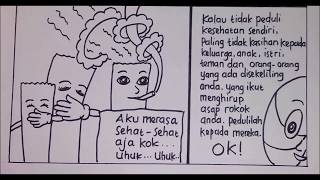 Aku merasa
sehat-sehat
aja kok...
uhuk... Uhuk..
Kalau tidak peduli
kesehatan sendiri,
Paling tidak kasihan kepada
keluarga, anak, istri,
teman dan orang-orang
yang ada disekeliling
anda. yang ikut
menghirup
asap rokok
anda. Pedulilah
kepada mereka.
OK!